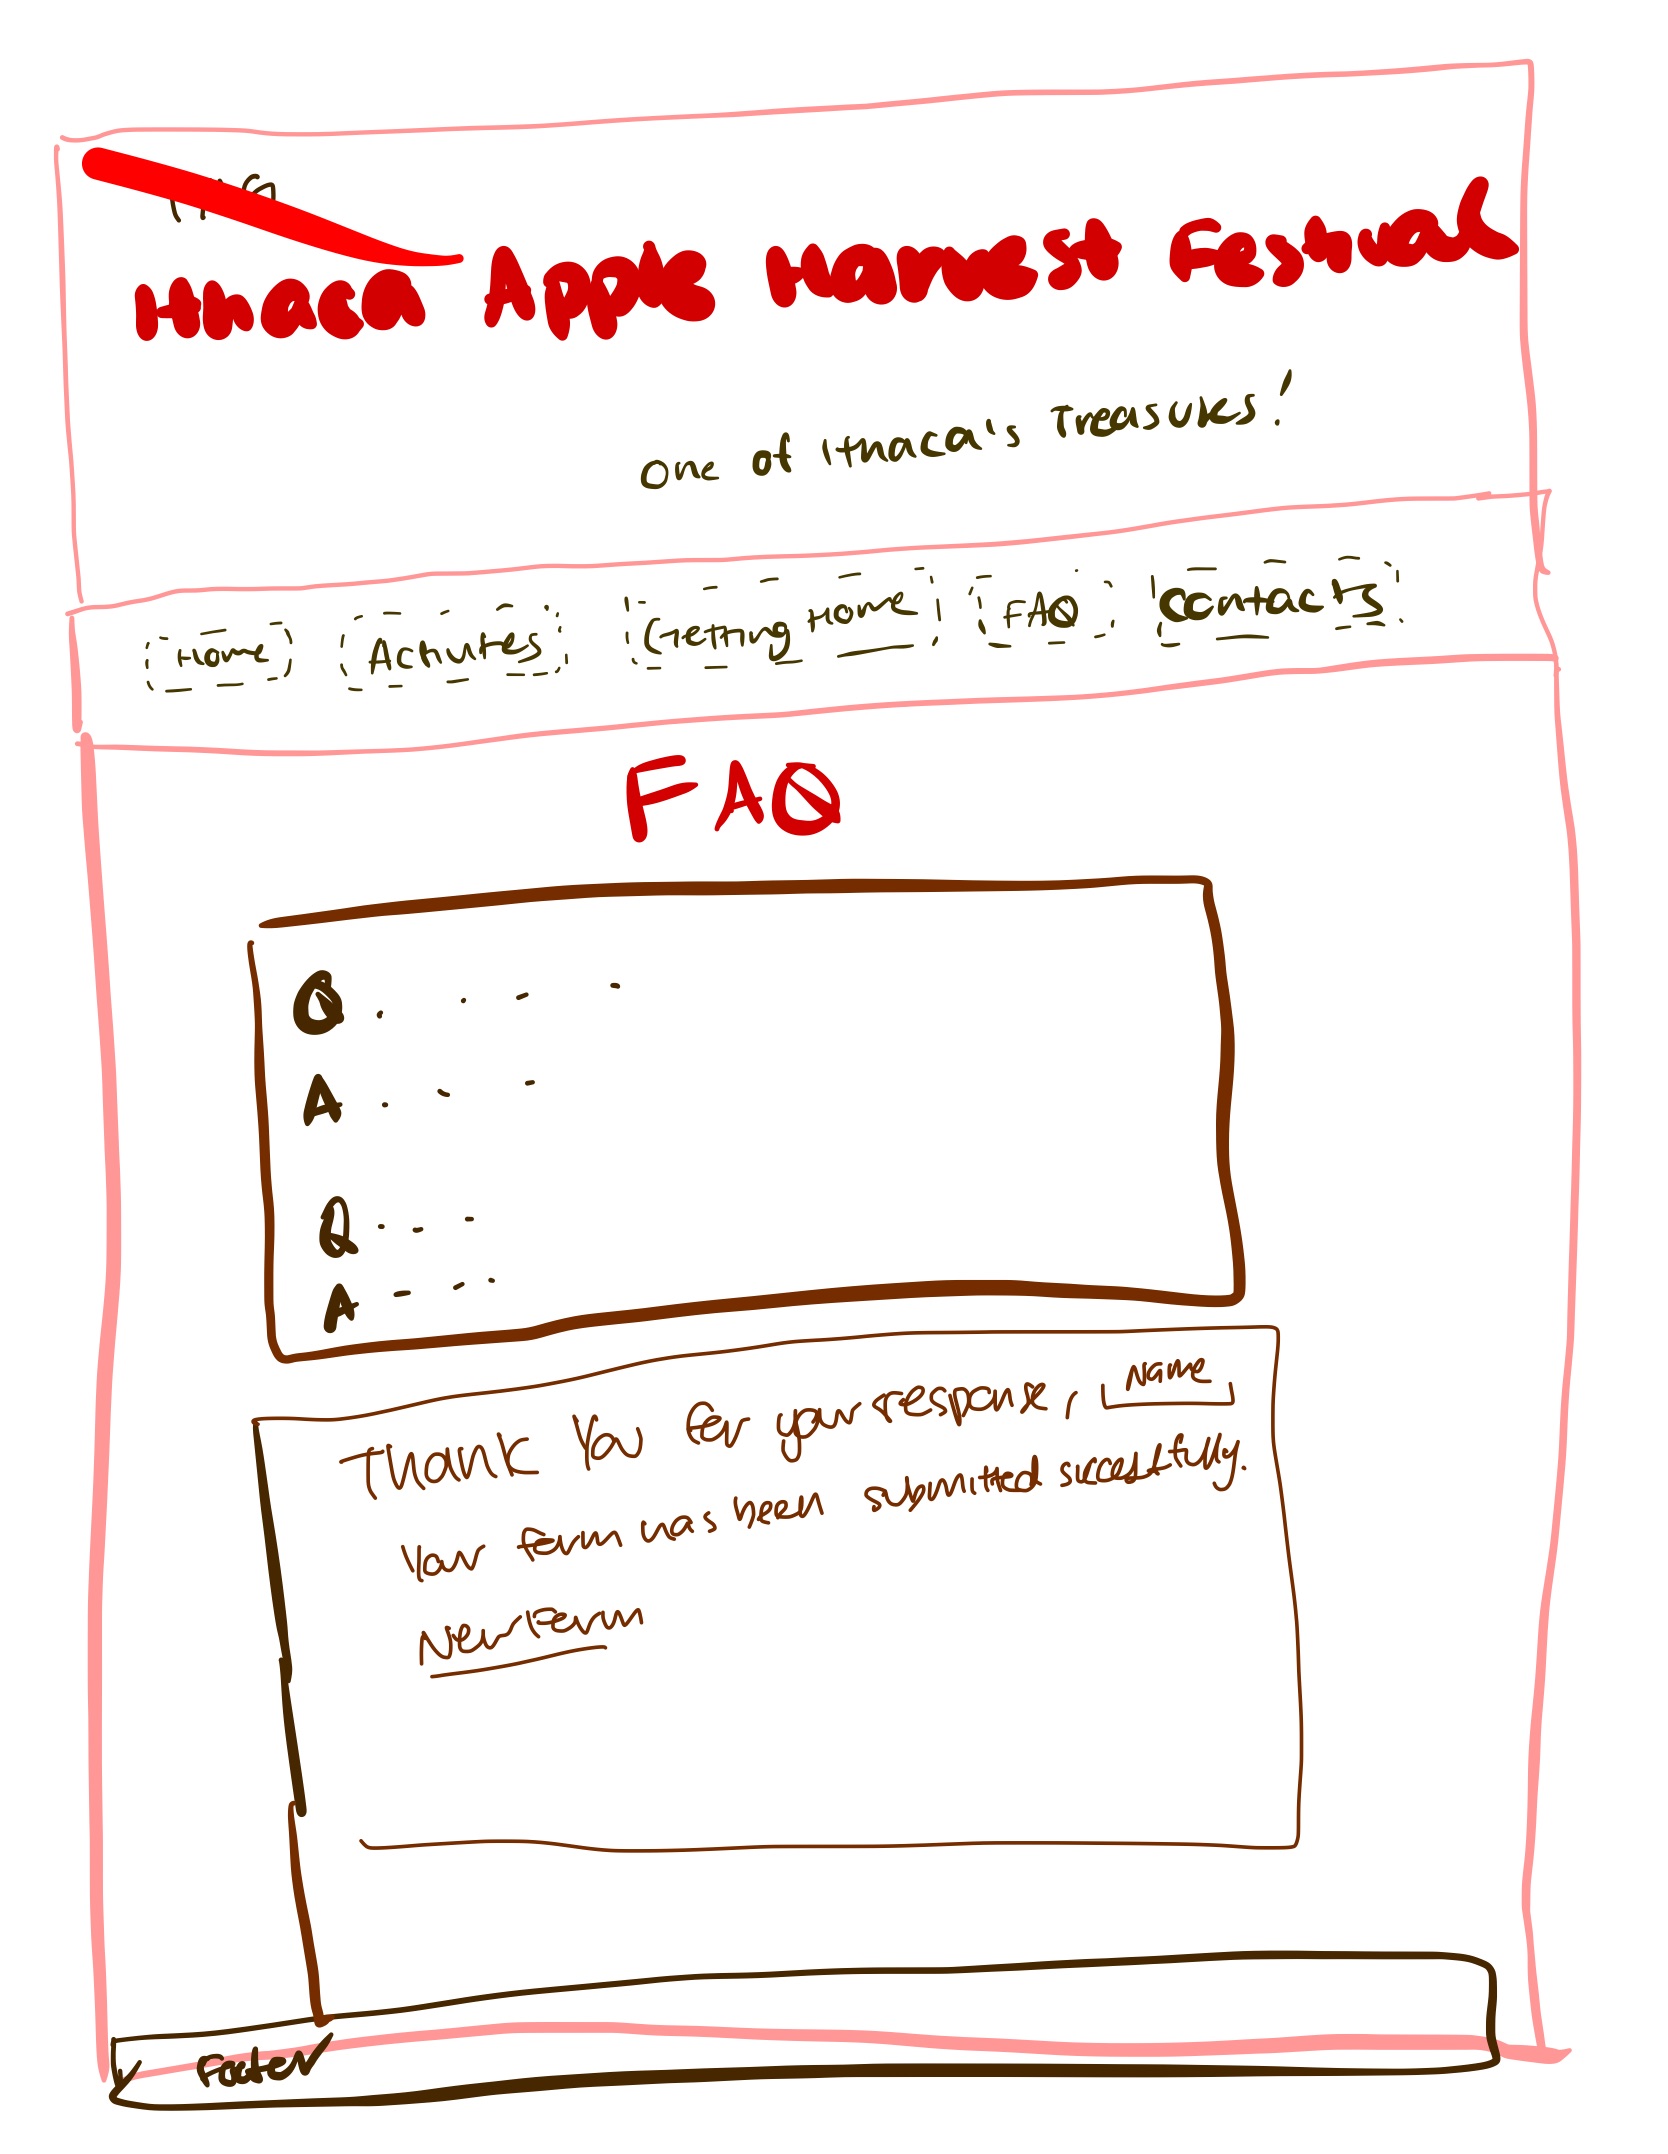 Ithaca Apple Harvest Festival
one of Ithaca's Treasures!
Home Activites Getting Home FAQ Contacts
FAQ
Q . . - -
A . - -
Q . - -
A - - .
Thank You for your response, Name
Your form has been submitted succesfully.
New Form
Footer